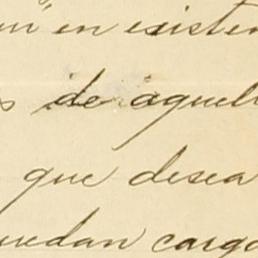 en existen
s de aquell
que desea
quedan carga